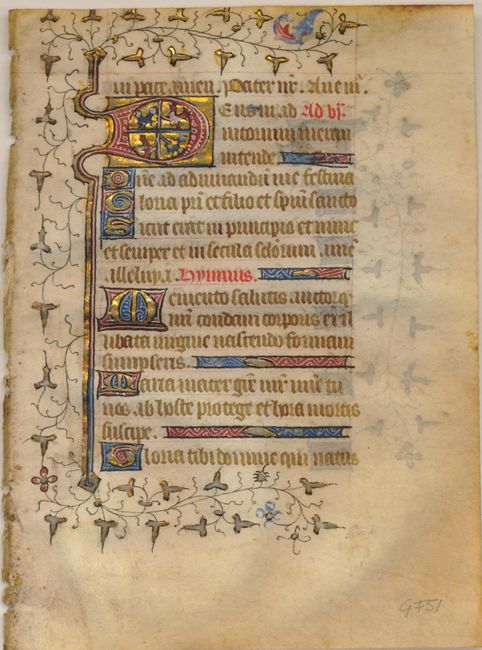 in pace amen. Pater nr̄. Aue m̄.
Deus in ad Ad vs̄.
iutorium meum
intende
Dn̄e ad adiuuandū me festina
Gloria pr̄i et filio et spūi sancto
Sicut erat in principio et nunc
et semper et in secula sclorum. am̄e
alleluya. Hymnus.
Memento salutis auctor q̄
nr̄i condam corporis ex il
libata uirgine nascendo formam
sumpseris.
Maria mater gr̄e mr̄ mīe tu
nos ab hoste protege et hora mortis
suscipe.
Gloria tibi domine qui natus
GF51